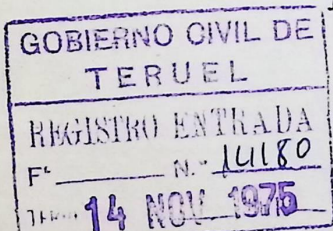 GOBIERNO CIVIL DE
TERUEL
REGISTRO ENTRADA
Fº N.º 14180
14 NOV. 1975